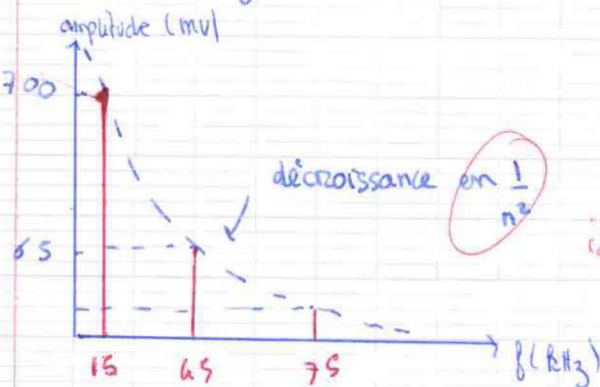 amplitude (mV)
700
décroissance en 1/n²
65
15 45 75 f(kHz)